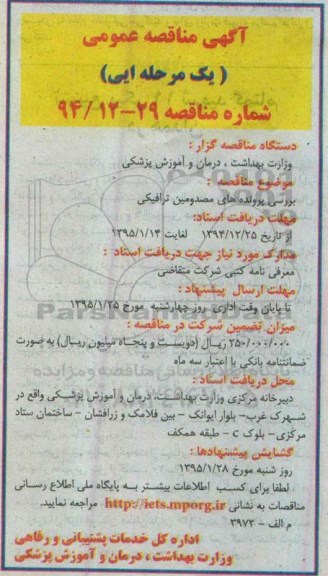 آگهی مناقصه عمومی
( یک مرحله ایی)
شماره مناقصه ۲۹-۹۴/۱۲
دستگاه مناقصه گزار :
وزارت بهداشت ، درمان و آموزش پزشکی
موضوع مناقصه :
بررسی پرونده های مصدومین ترافیکی
مهلت دریافت اسناد:
از تاریخ ۱۳۹۴/۱۲/۲۵ لغایت ۱۳۹۵/۱/۱۴
مدارک مورد نیاز جهت دریافت اسناد :
معرفی نامه کتبی شرکت متقاضی
مهلت ارسال پیشنهاد :
تا پایان وقت اداری روز چهارشنبه مورخ ۱۳۹۵/۱/۲۵
میزان تضمین شرکت در مناقصه :
۲۵۰/۰۰۰/۰۰۰ ریال (دویست و پنجاه میلیون ریال) به صورت
ضمانتنامه بانکی با اعتبار سه ماه
محل دریافت اسناد :
دبیرخانه مرکزی وزارت بهداشت، درمان و آموزش پزشکی واقع در
شهرک غرب- بلوار ایوانک - بین فلامک و زرافشان - ساختمان ستاد
مرکزی- بلوک c - طبقه همکف
گشایش پیشنهادها :
روز شنبه مورخ ۱۳۹۵/۱/۲۸
لطفا برای کسب اطلاعات بیشتر به پایگاه ملی اطلاع رسانی
مناقصات به نشانی http://iets.mporg.ir مراجعه نمایید.
م الف - ۳۹۷۲
اداره کل خدمات پشتیبانی و رفاهی
وزارت بهداشت ، درمان و آموزش پزشکی